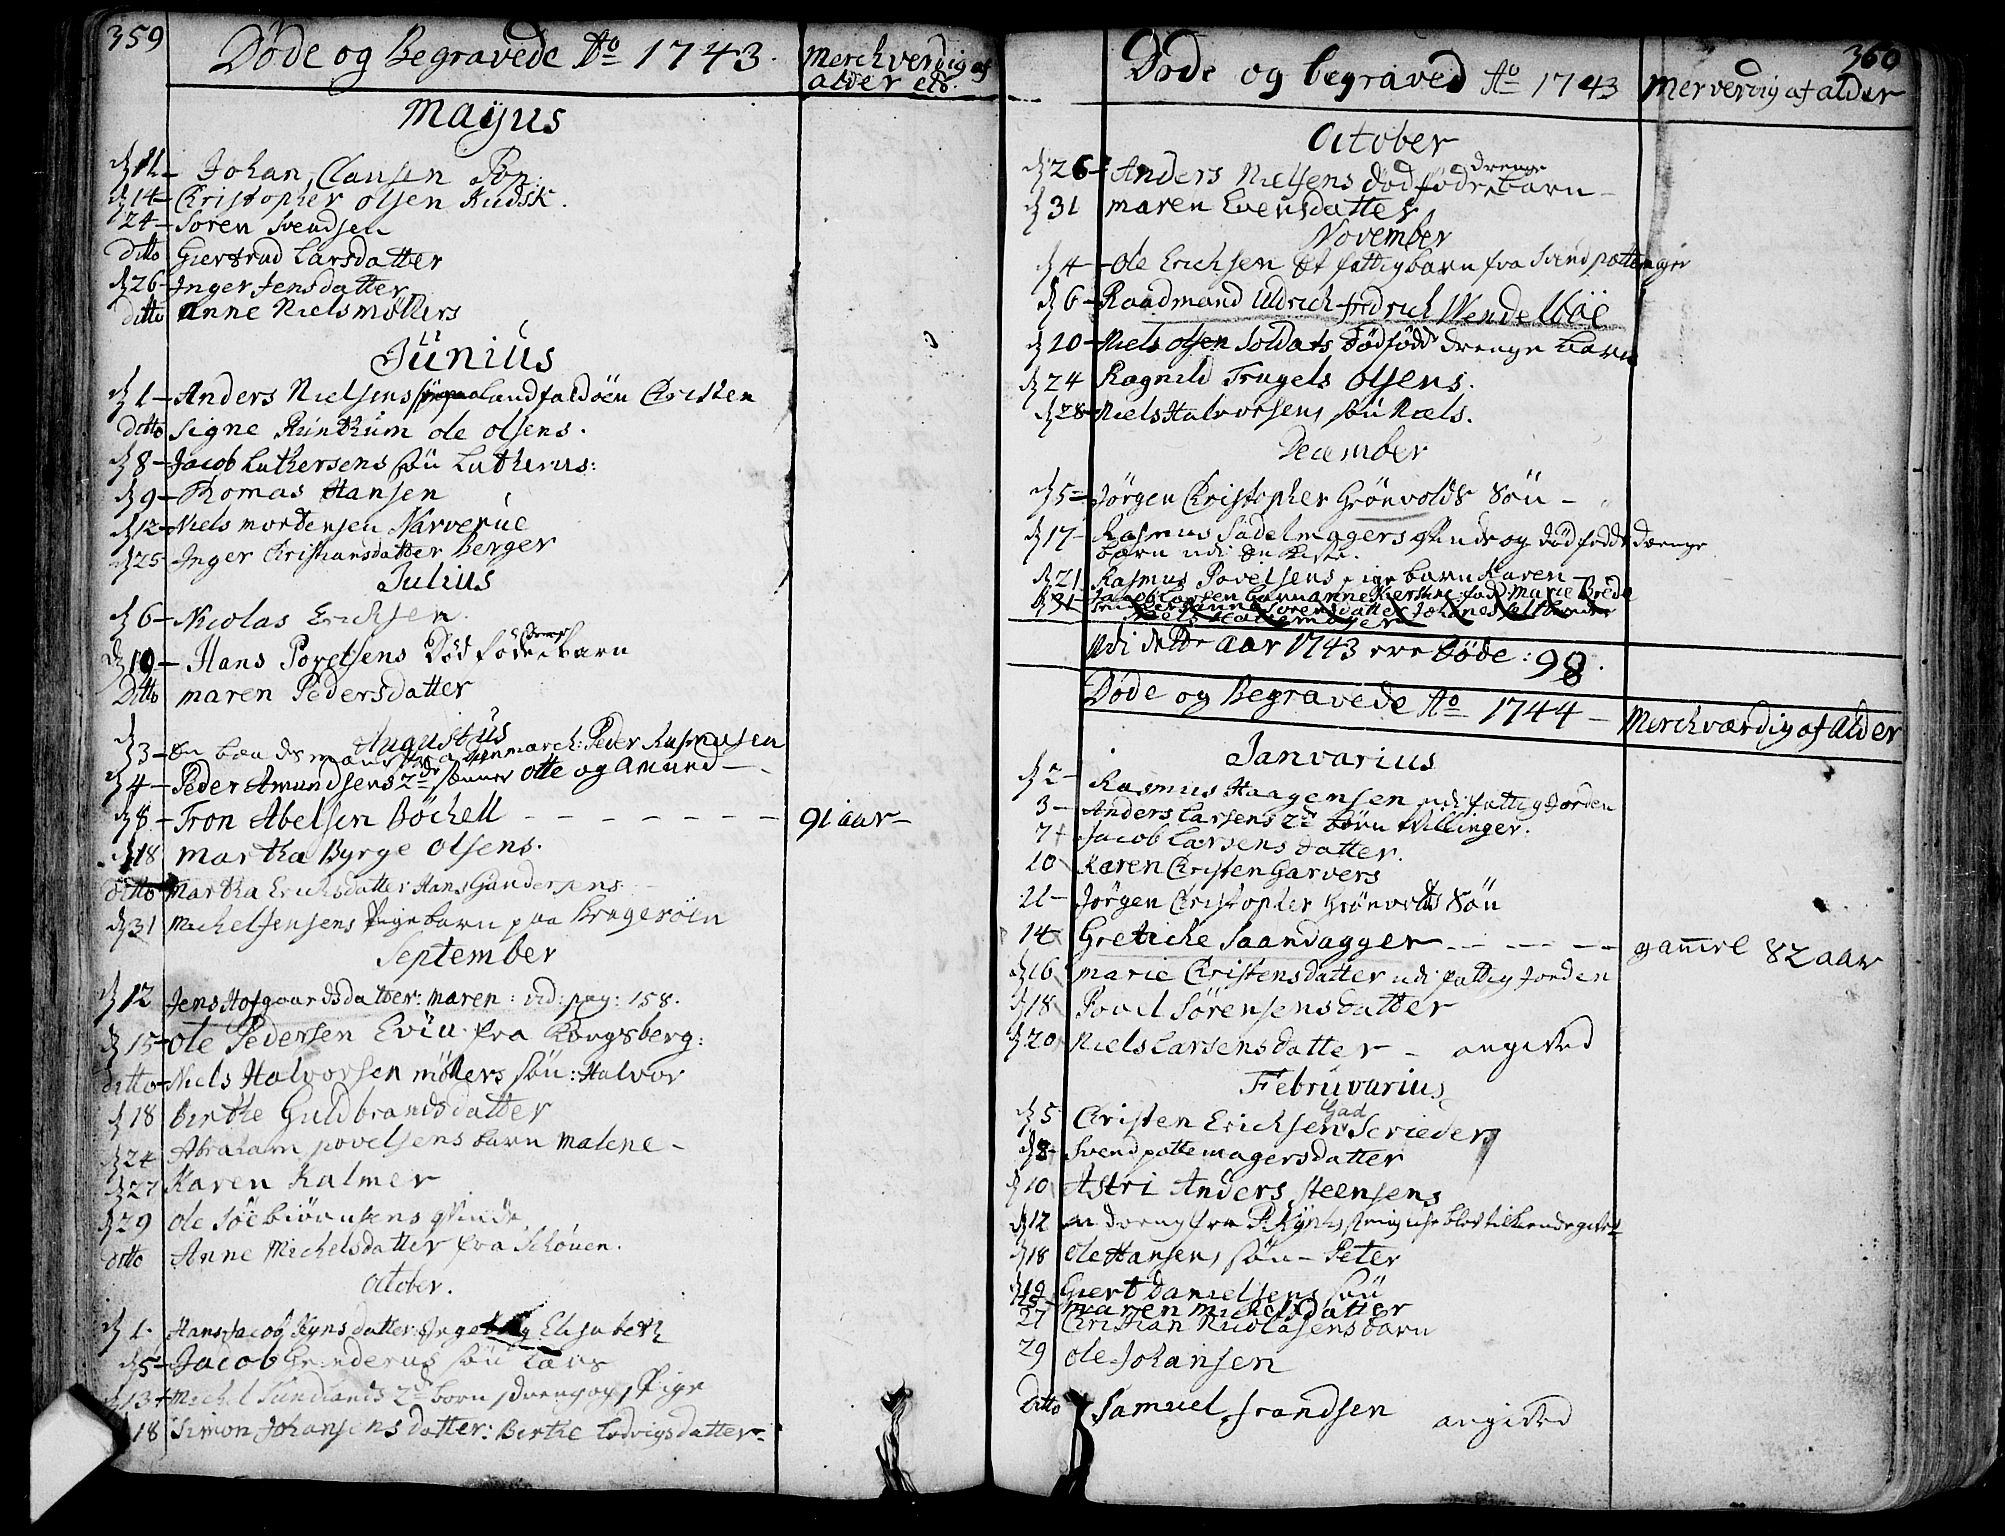 359
Døde og Begravede Ao 1743.
Merchverdig af
alder etc.
Mayus
11 - Johan Clausen
14 - Christopher Olsen Kudsk.
24 - Søren Svendsen
Ditto Giertrud Larsdatter
26 - Inger Jensdatter
ditto Anne Niels møllers
Junius
1 - Anders Nielsens Christen
Ditto Signe Ole Olsens.
8 - Jacob Luthersens søn Lutherus:
9 - Thomas Hansen
12 - Niels mortensen Narverue
25 - Inger Christiansdatter Berger
Julius
6 - Nicolas Erichsen.
10 - Hans Povelsens Død føde barn
Ditto maren Pedersdatter
Augustus
3 - Peder Rasmusen
4 - Peder Amundsens 2de sønner Otte og Amund -
8 - Tron Abelsen Bøchell - - - - - - - 91 aar -
18 Martha Byrge Olsens.
ditto Martha Erichsdatter Hans Gundersens
31 Michel Jensens Pige barn paa Bragerøen
September
12 Jens Hofgaards datter: maren: vid: pag: 158.
15 - Ole Pedersen Eviu fra Kongsberg:
ditto - Niels Halvorsen møllers søn: Halvor
18 Birthe Guldbrandsdatter
24 Abraham povelsens barn Malene -
27 Karen Kalmer
29 Ole Søebiørnsens qvinde
ditto Anne Michelsdatter fra Schøuen.
October.
1. Hans Jacob Kyns datter: Elisabeth
5 - Jacob søn Lars
13 + Michel Sundlands 2de børn, dreng og, Pige
18 Simon Johansens datter: Birthe Lodvigsdatter -
360
Døde og begraved Ao 1743
Merverdig af alder
October
26 - Anders Nielsens død fødde drenge barn -
31 maren Evensdatter
November
4 - Ole Erichsen Et fattig barn fra Svend pottemager
6 - Raadmand Uldrich fredrich Wendelboe
10 - Niels Olsen Soldats Død fødde drenge barn
24 Ragnild Trugels Olsens.
28 - Niels Halvorsens søn Niels.
December
5 - Jørgen Christopher Grønvolds Søn -
17 - Rasmus Sadelmagers qvinde og død fødde drenge
barn udi en kiste.
21 Rasmus Povelsens pige barn Karen
31 - Jacob Larsen barn anne
Udi dette aar 1743 ere Døde: 98.
Døde og Begravede Ao 1744 -
Merchværdig af alder
Janvarius
2 - Rasmus Haagensen udi fattig Jorden
3 - Anders Larsens 2de børn tvillinger.
7 + Jacob Larsens Datter.
10 Karen Christen Garvers
11 - Jørgen Christopher Grønvolds Søn
14 Greticke Saandagger - - - - - gammel 82 aar
16 marie Christensdatter udi fattig Jorden
18 Povel Sørensens datter
20 Niels Larsens datter - angived
Februvarius
5 Christen Erichsen Gad
8 - Svend pottemagers datter
10 Astri Anders Steensens
12 en dreng fra
18 Ole Hansens, søn - Peter
19 Giert Danielsens søn
25 maren michelsdatter
27 Christian Nicolasens barn
29 Ole Johansen
Ditto Samuel frandsen angived